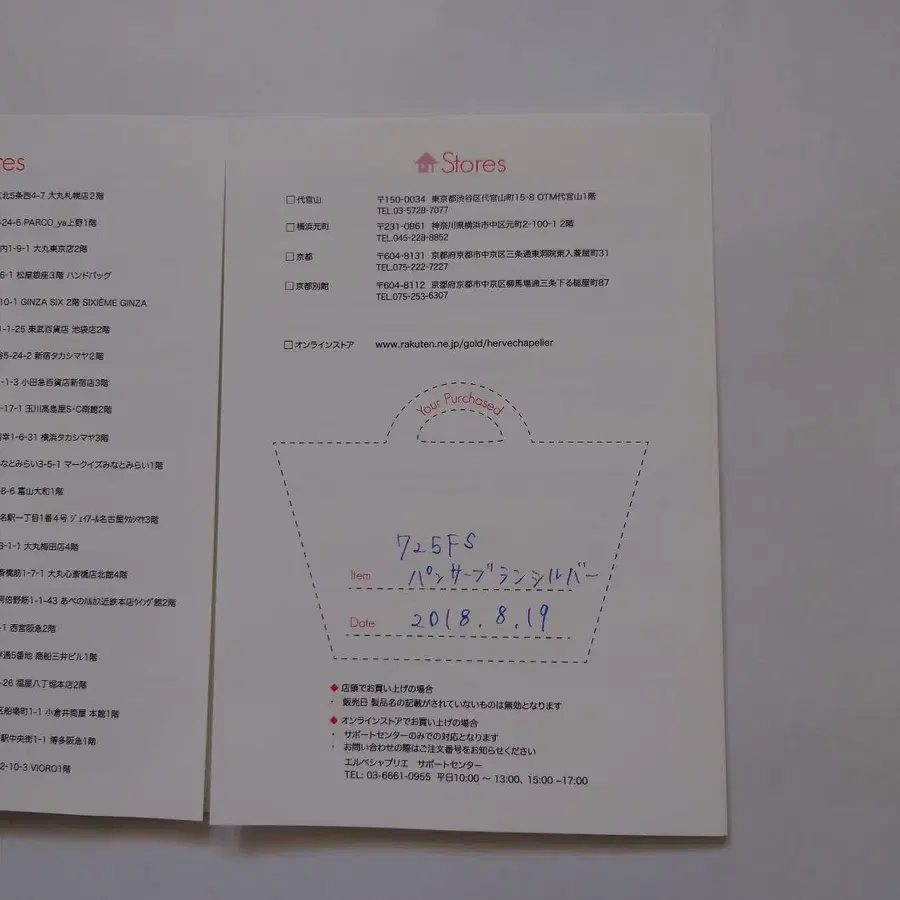 res
北5条西4-7 大丸札幌店2階
-24-6 PARCO_ya上野1階
内1-9-1 大丸東京店2階
6-1 松屋銀座3階 ハンドバッグ
10-1 GINZA SIX 2階 SIXIÈME GINZA
1-1-25 東武百貨店 池袋店2階
5-24-2 新宿タカシマヤ2階
-1-3 小田急百貨店新宿店3階
-17-1 玉川高島屋S・C南館2階
幸1-6-31 横浜タカシマヤ3階
なとみらい3-5-1 マークイズみなとみらい1階
-8-6 富山大和1階
名駅一丁目1番4号 ジェイアール名古屋タカシマヤ3階
3-1-1 大丸梅田店4階
斎橋筋1-7-1 大丸心斎橋店北館4階
阿倍野筋1-1-43 あべのハルカス近鉄本店ウイング館2階
-1 西宮阪急2階
岸通5番地 商船三井ビル1階
-26 福屋八丁堀本店2階
区船場町1-1 小倉井筒屋 本館1階
駅中央街1-1 博多阪急1階
2-10-3 VIORO1階
Stores
代官山 〒150-0034 東京都渋谷区代官山町15-8 OTM代官山1階
TEL.03-5728-7077
横浜元町 〒231-0861 神奈川県横浜市中区元町2-100-1 2階
TEL.045-228-8852
京都 〒604-8131 京都府京都市中京区三条通東洞院東入菱屋町31
TEL.075-222-7227
京都別館 〒604-8112 京都府京都市中京区柳馬場通三条下る槌屋町87
TEL.075-253-6307
オンラインストア www.rakuten.ne.jp/gold/hervechapelier
Your Purchased
725FS
Item パンサーブランシルバー
Date 2018.8.19
◆ 店頭でお買い上げの場合
・ 販売日 製品名の記載がされていないものは無効となります
◆ オンラインストアでお買い上げの場合
・ サポートセンターのみでの対応となります
・ お問い合わせの際はご注文番号をお知らせください
エルベシャプリエ サポートセンター
TEL: 03-6661-0955 平日10:00 ~ 13:00、15:00 ~17:00